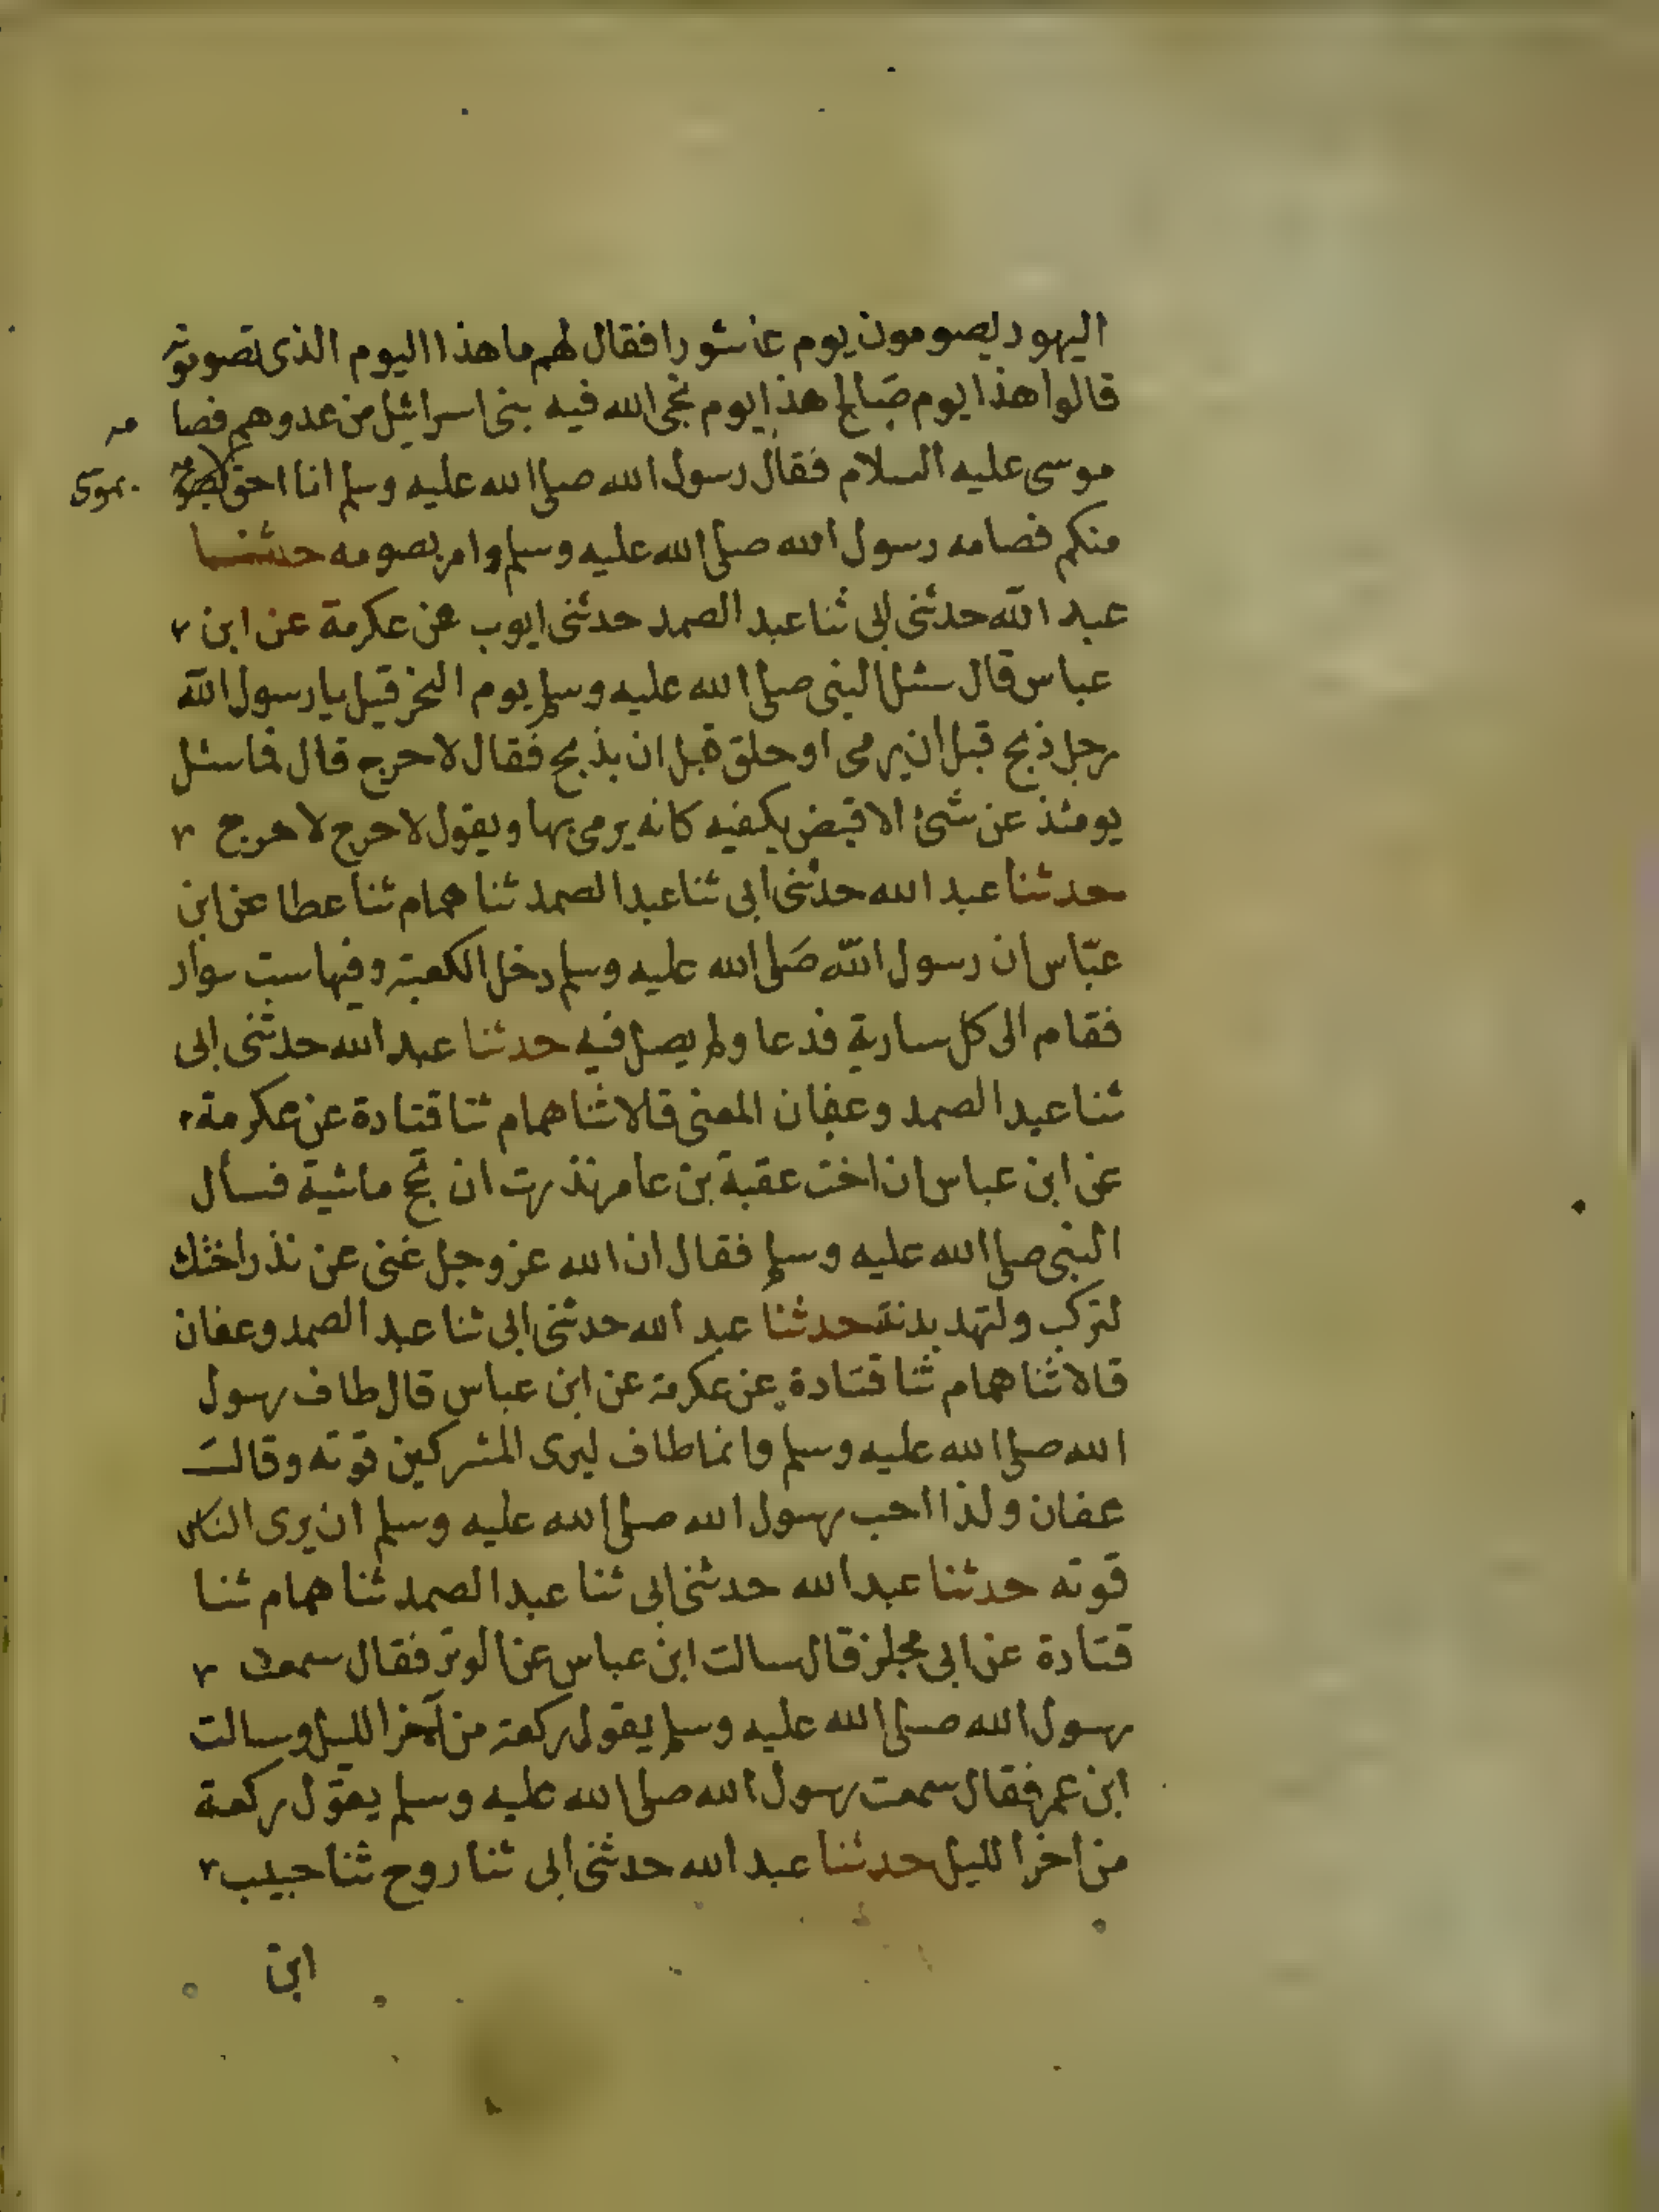 اليهود يصومون يوم عاشورا فقال لهم ما هذا اليوم الذى تصومونه
قالوا هذا يوم صالح هذا يوم نجى الله فيه بنى اسرائيل من عدوهم فصامه
موسى عليه السلام فقال رسول الله صلى الله عليه وسلم انا احق بموسى
منكم فصامه رسول الله صلى الله عليه وسلم وامر بصومه حدثنا
عبد الله حدثنى ابى ثنا عبد الصمد حدثنى ايوب عن عكرمة عن ابن
عباس قال سئل النبى صلى الله عليه وسلم يوم النحر قيل يا رسول الله
رجل ذبح قبل ان يرمى او حلق قبل ان يذبح فقال لا حرج قال فما سئل
يومئذ عن شئ الا قبض بكفيه كانه يرمى بها ويقول لا حرج لا حرج
حدثنا عبد الله حدثنى ابى ثنا عبد الصمد ثنا همام ثنا عطا عن ابن
عبّاس ان رسول الله صَلى الله عليه وسلم دخل الكعبة وفيها ست سوار
فقام الى كل سارية فدعا ولم يصل فيه حدثنا عبد الله حدثنى ابى
ثنا عبد الصمد وعفان المعنى قالا ثنا همام ثنا قتادة عن عكرمة
عن ابن عباس ان اخت عقبة بن عامر نذرت ان تحج ماشية فسأل
النبى صلى الله عليه وسلم فقال ان الله عز وجل غنى عن نذر اختك
لتركب ولتهد بدنة حدثنا عبد الله حدثنى ابى ثنا عبد الصمد وعفان
قالا ثنا همام ثنا قتادة عن عكرمة عن ابن عباس قال طاف رسول
الله صلى الله عليه وسلم وانما طاف ليرى المشركين قوته وقالت
عفان ولذا احب رسول الله صلى الله عليه وسلم ان يرى الناس
قوته حدثنا عبد الله حدثنى ابى ثنا عبد الصمد ثنا همام ثنا
قتادة عن ابى مجلز قال سالت ابن عباس عن الوتر فقال سمعت
رسول الله صلى الله عليه وسلم يقول ركعة من آخر الليل وسالت
ابن عمر فقال سمعت رسول الله صلى الله عليه وسلم يقول ركعة
من اخر الليل حدثنا عبد الله حدثنى ابى ثنا روح ثنا حبيب
ابن